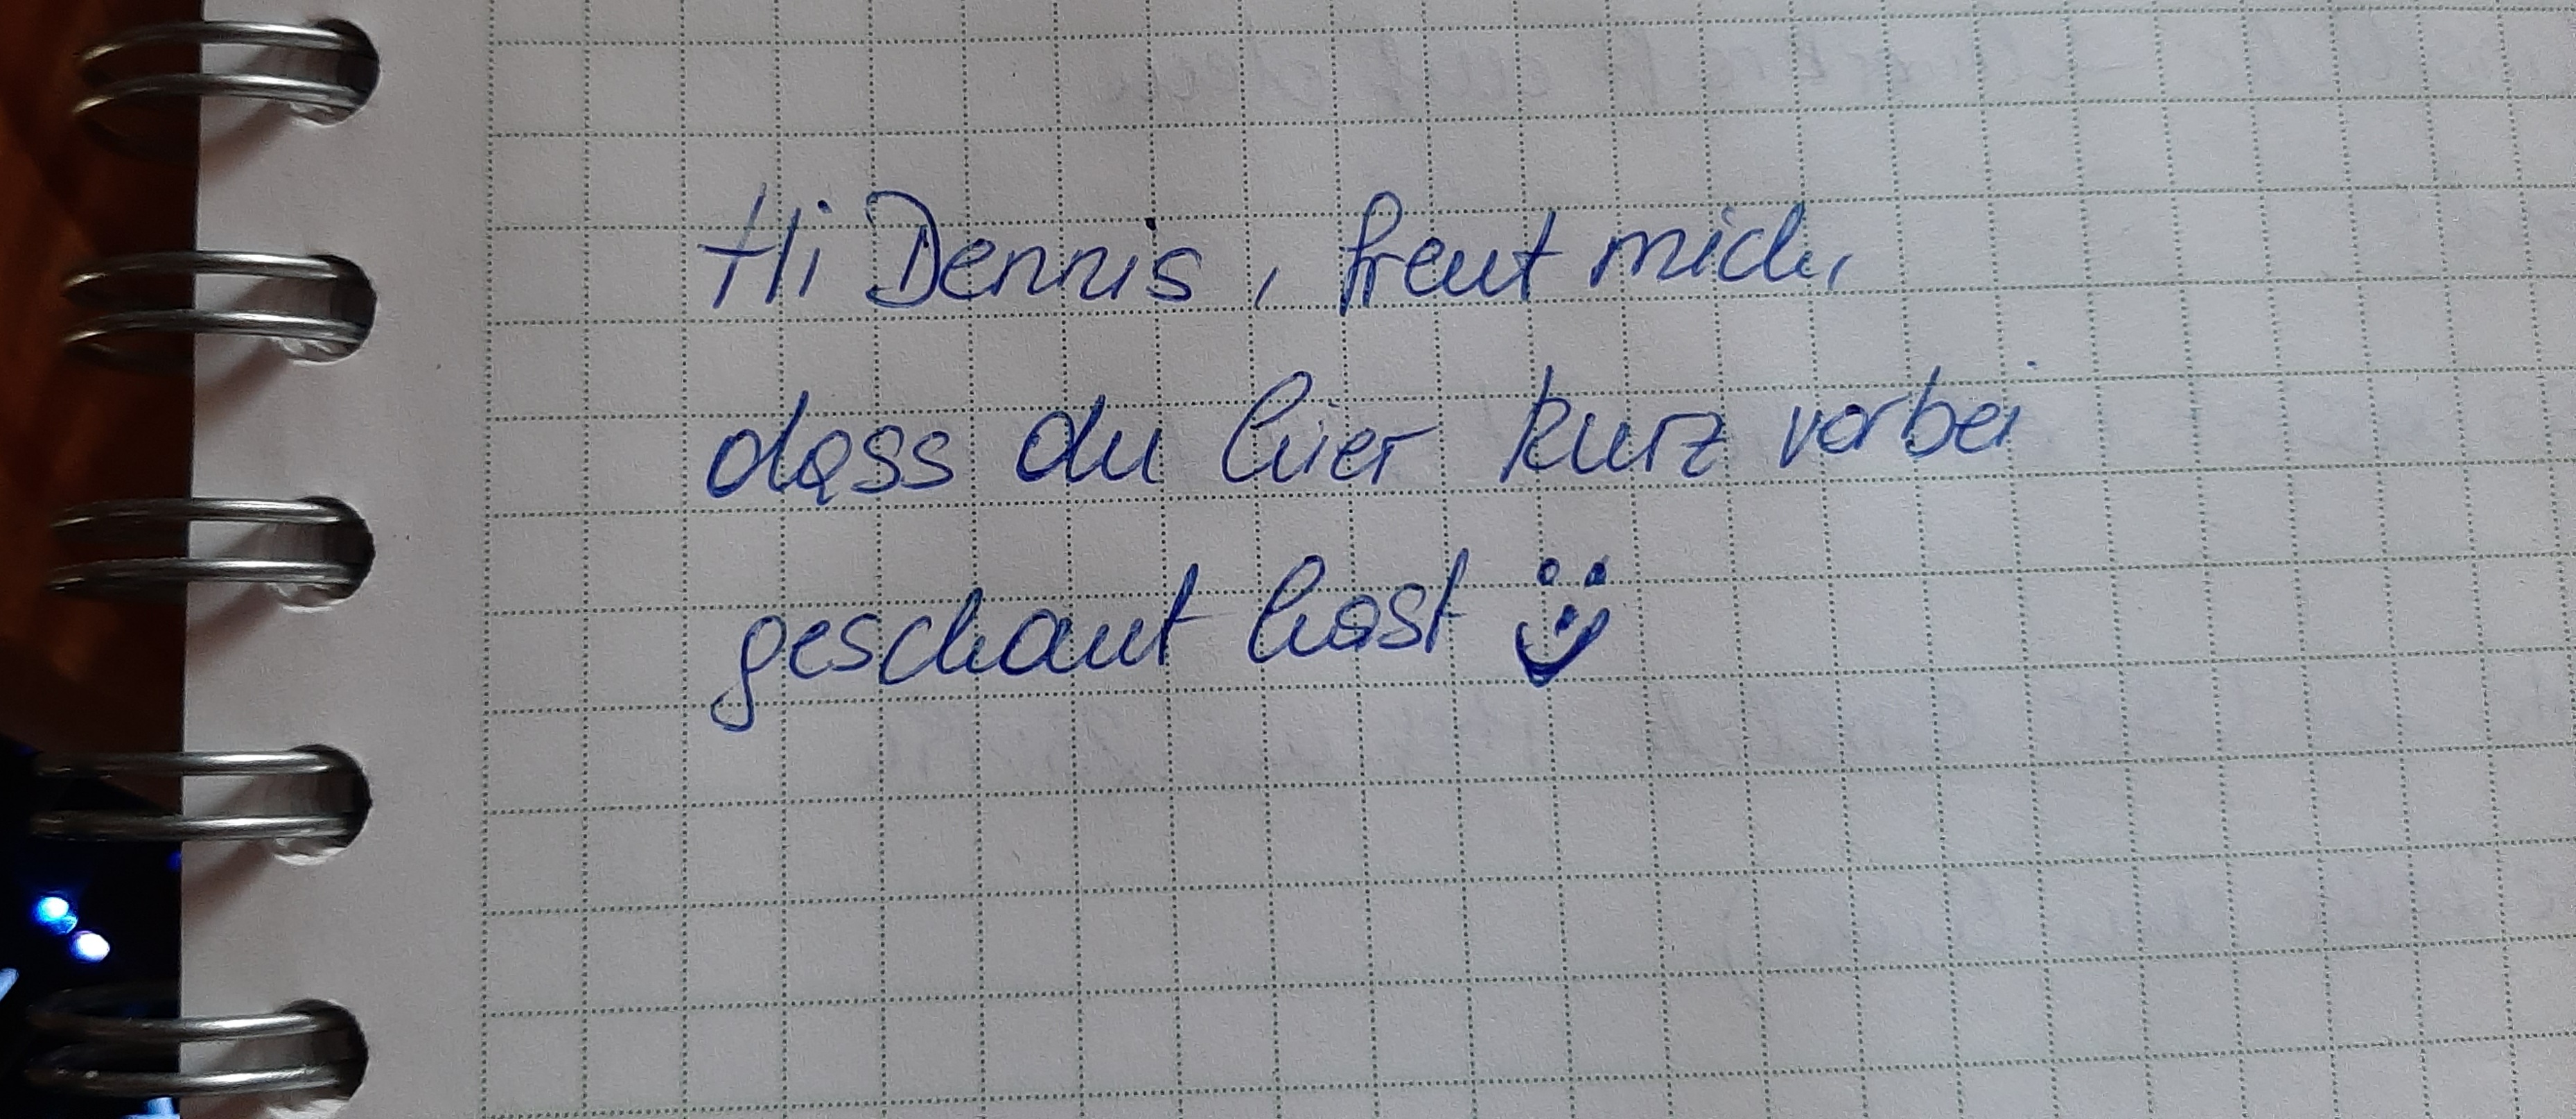 Hi Dennis, freut mich,
dass du hier kurz vorbei
geschaut hast :)